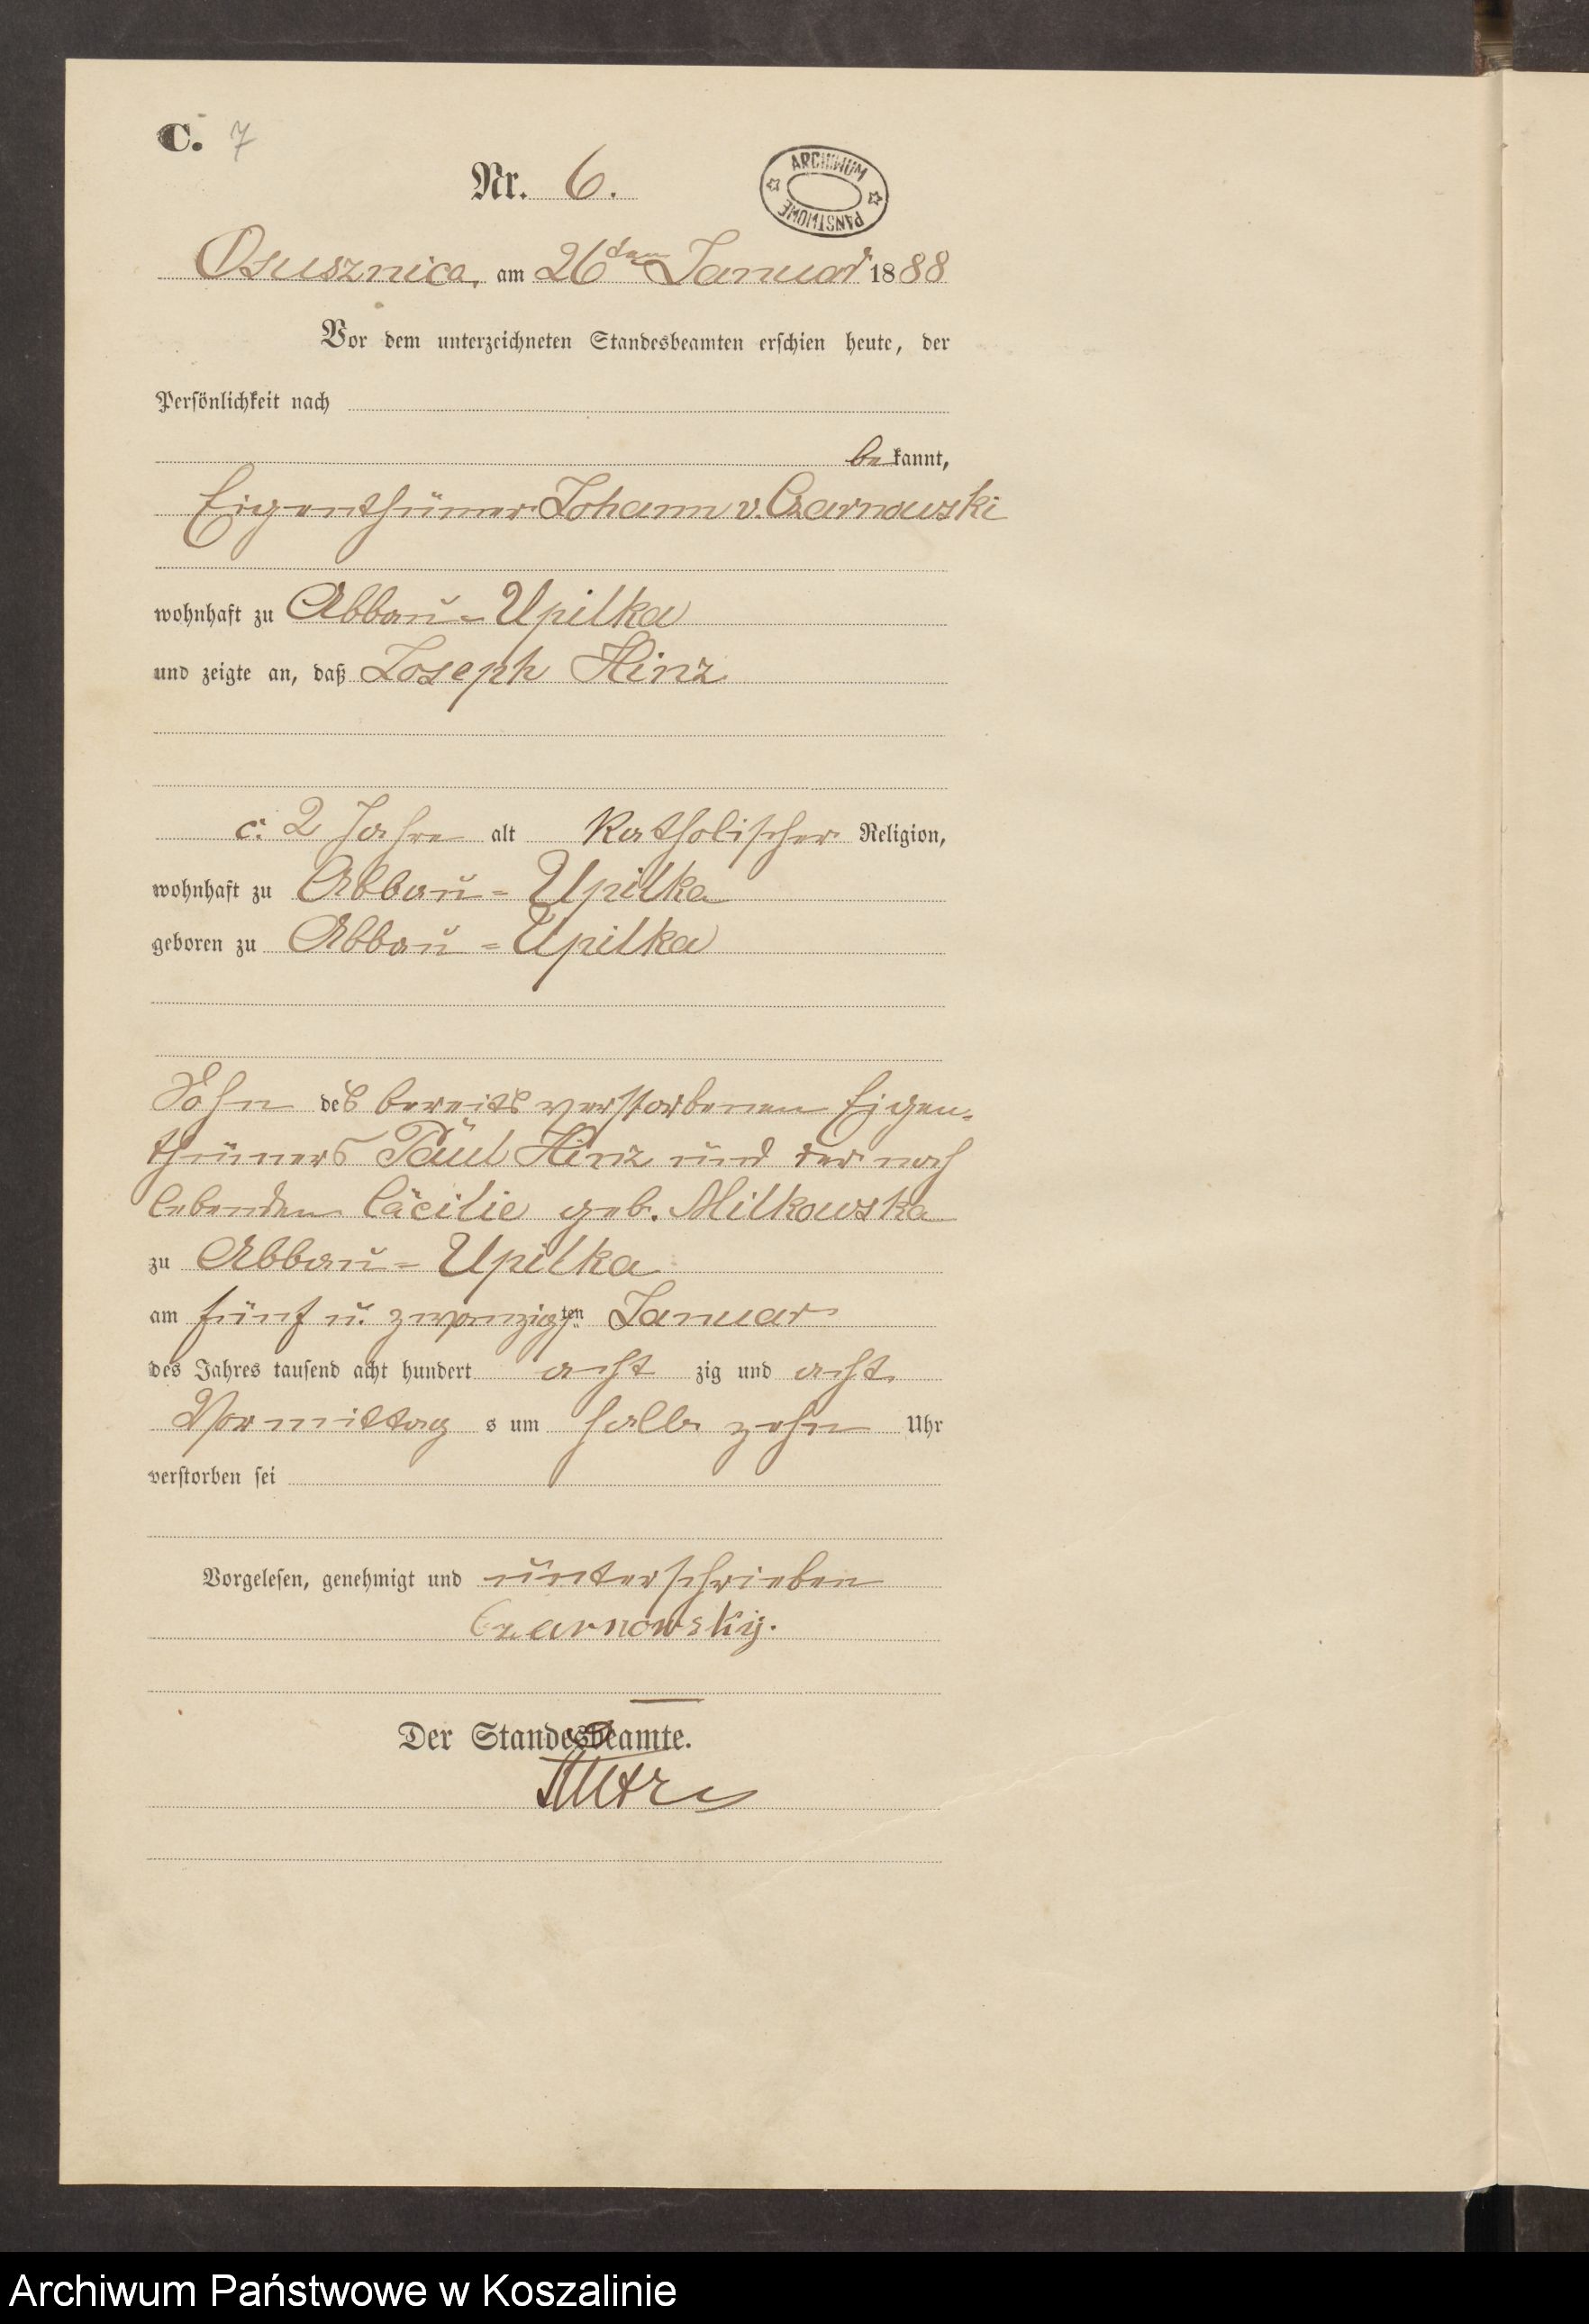 C. 7
Nr. 6.
ARCHIWUM PAŃSTWOWE
Osusznica, am 26ten Januar 1888
Vor dem unterzeichneten Standesbeamten erschien heute, der
Persönlichkeit nach
be kannt,
Eigenthümer Johann v. Czarnowski
wohnhaft zu Abbau-Upilka
und zeigte an, daß Joseph Hinz
c. 2 Jahre alt katholischer Religion,
wohnhaft zu Abbau-Upilka
geboren zu Abbau-Upilka
Sohn des bereits verstorbenen Eigen-
thümers Paul Hinz und der noch
lebenden Cäcilie geb. Milkowska
zu Abbau-Upilka
am fünf u. zwanzigten Januar
des Jahres tausend acht hundert acht zig und acht
Vormittag s um halb zehn Uhr
verstorben sei
Vorgelesen, genehmigt und unterschrieben
Czarnowsky.
Der Standesbeamte.
Archiwum Państwowe w Koszalinie